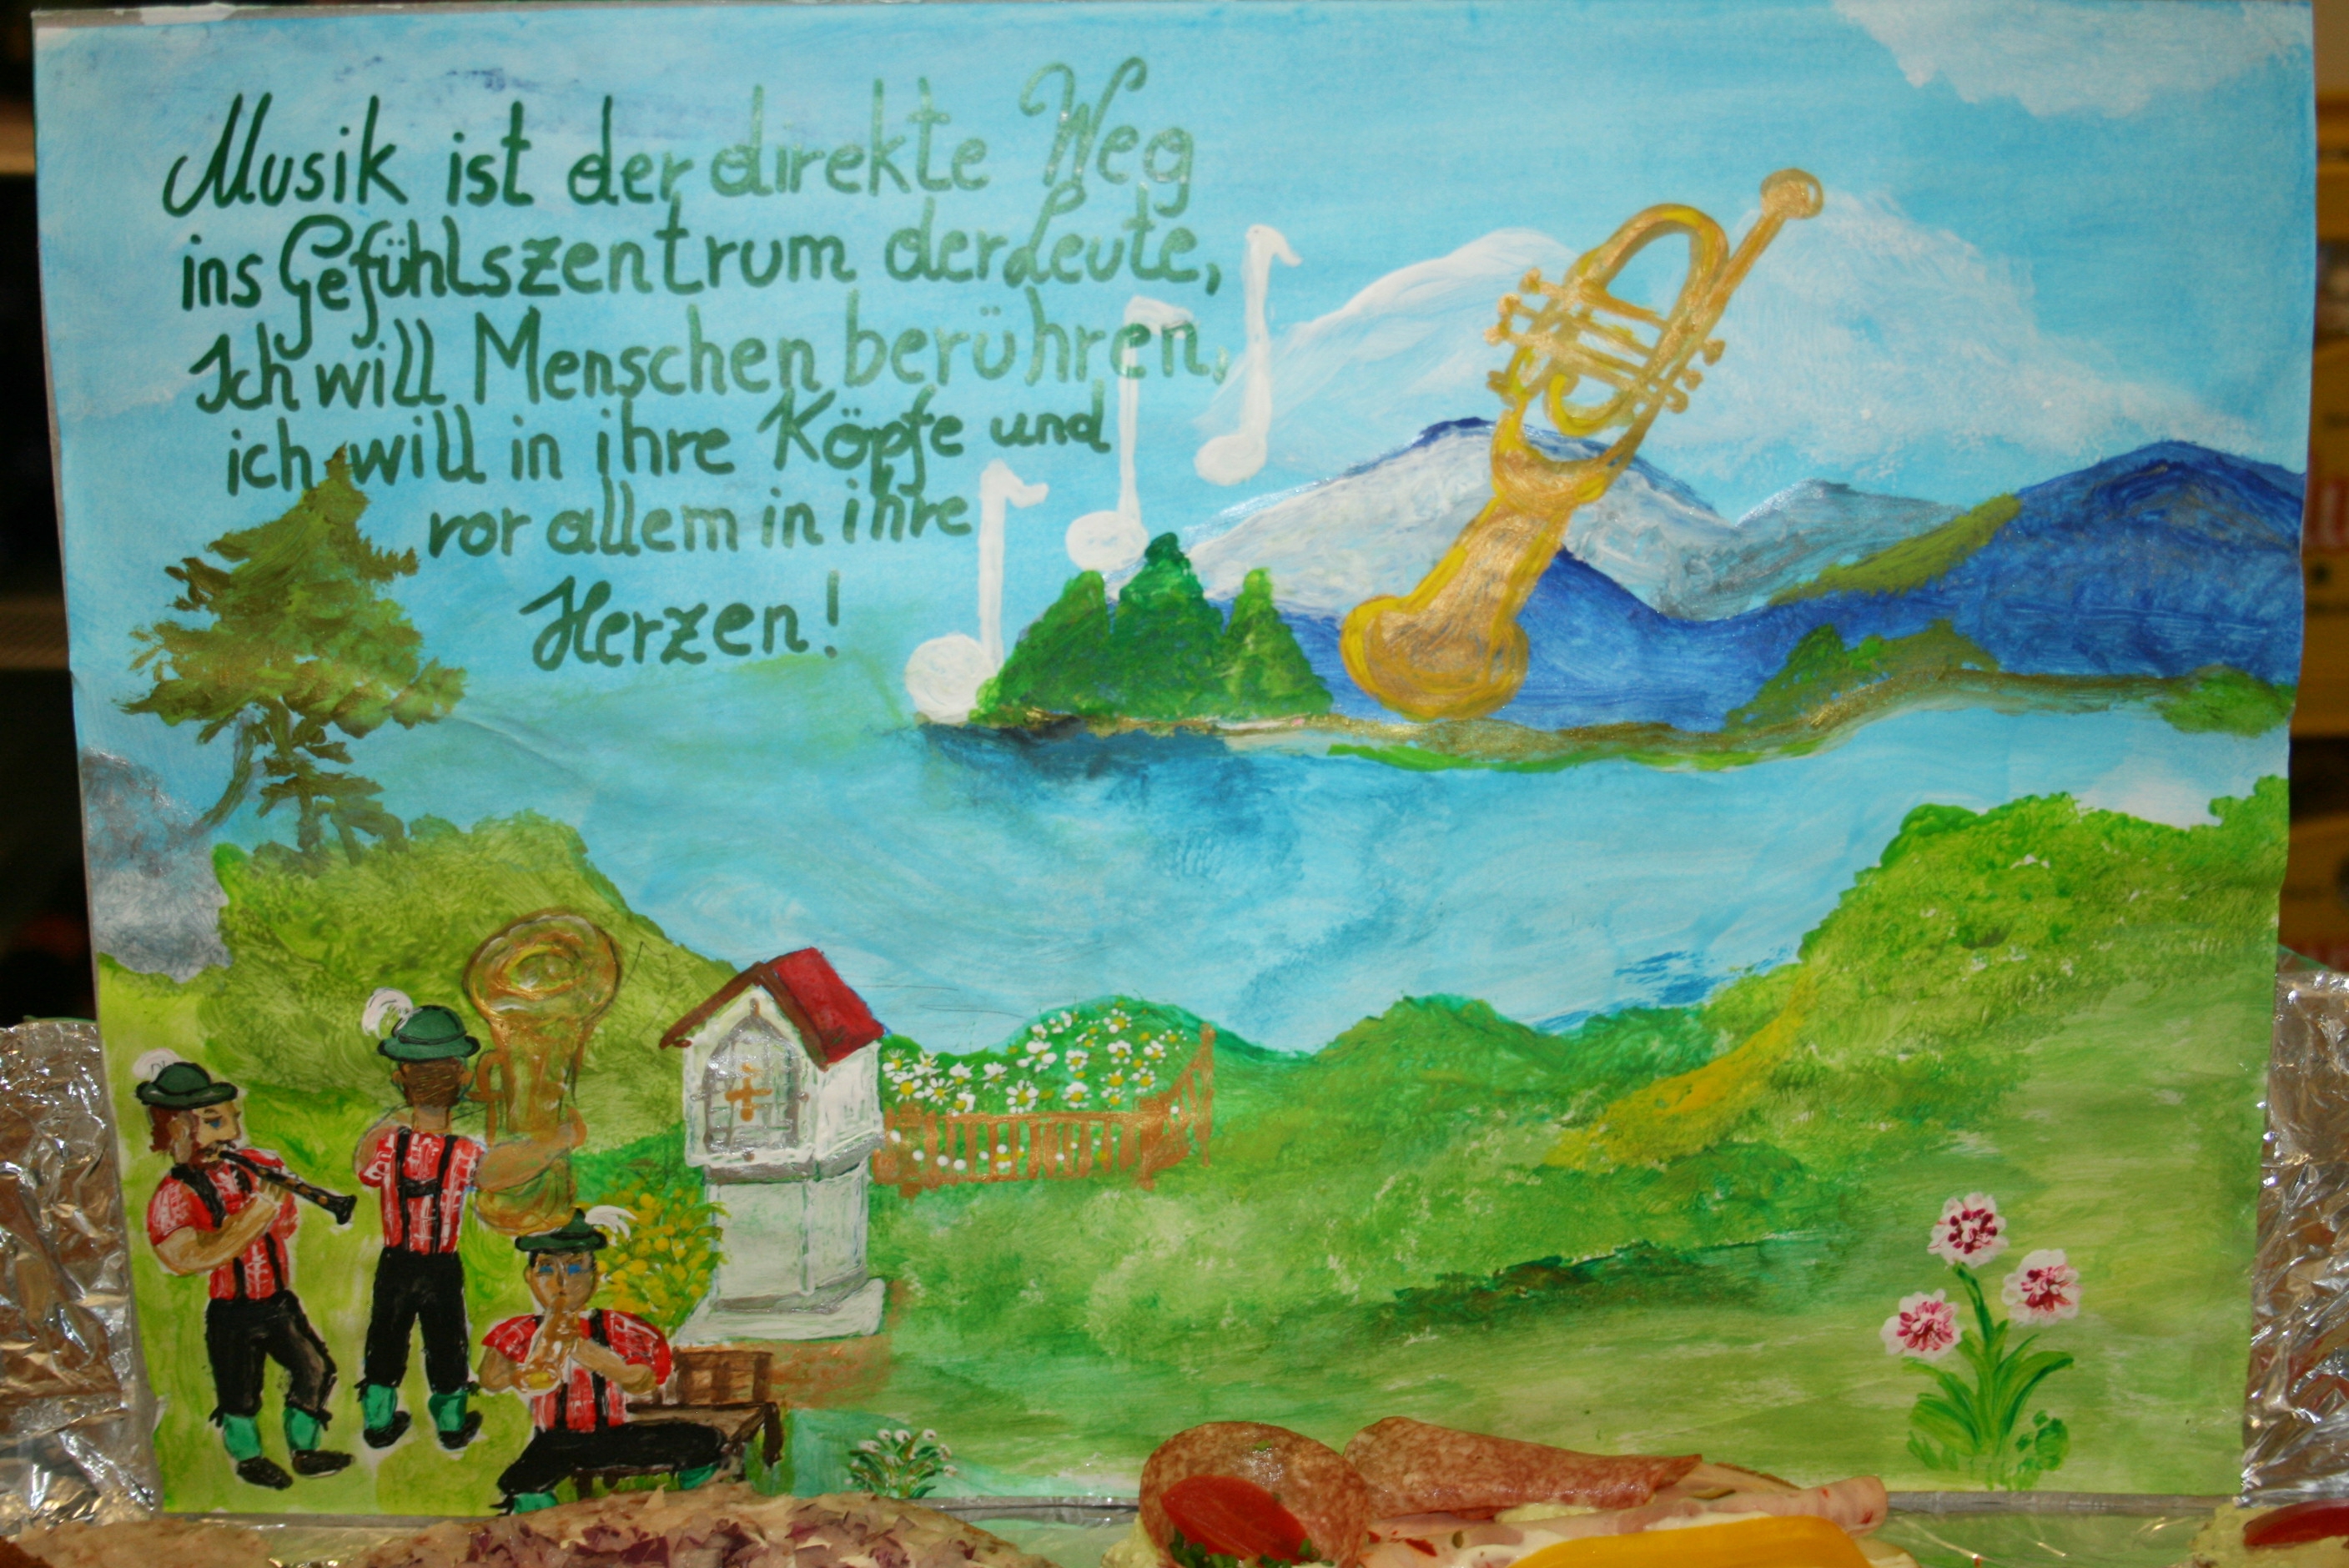 Musik ist der direkte Weg
ins Gefühlszentrum der Leute,
Ich will Menschen berühren,
ich will in ihre Köpfe und
vor allem in ihre
Herzen!